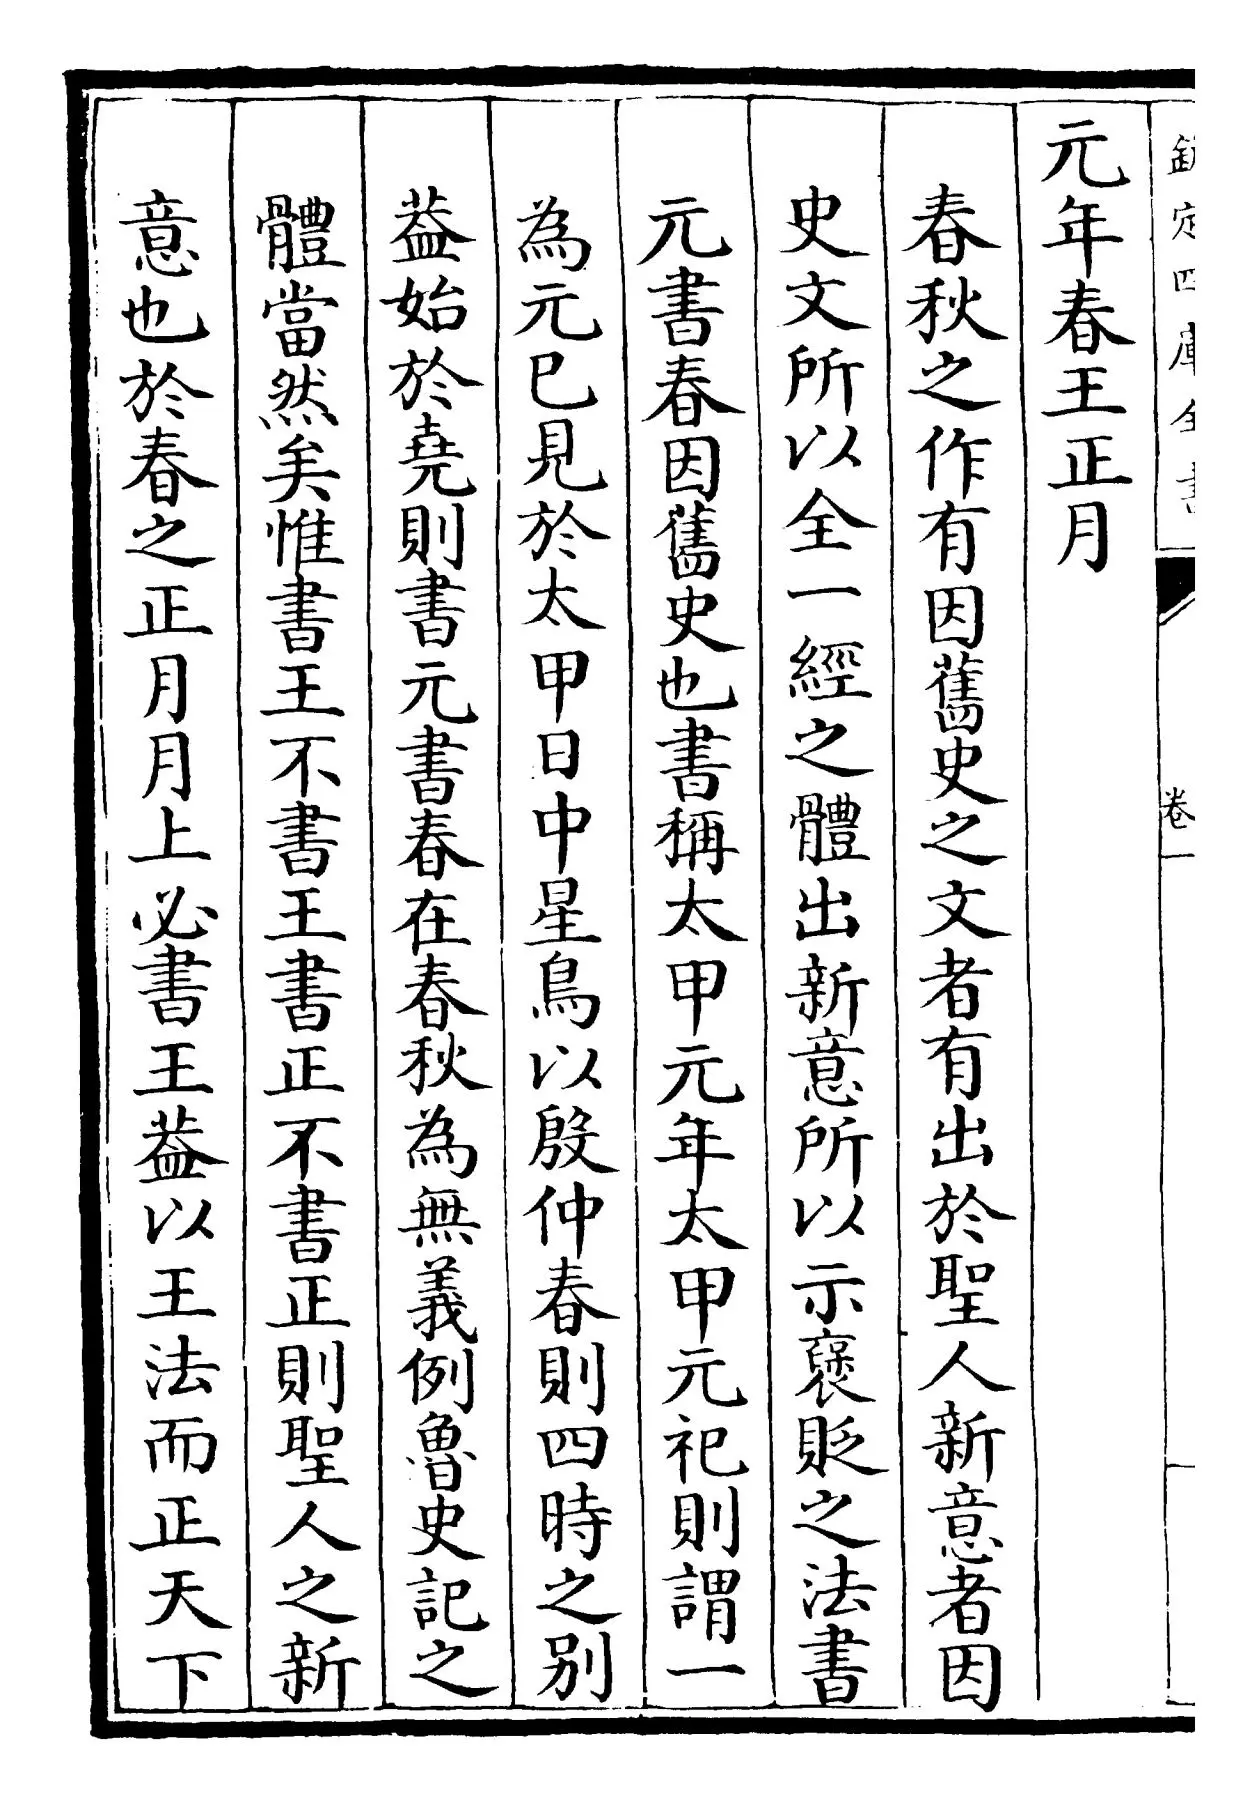 欽定四庫全書
卷一
元年春王正月
春秋之作有因舊史之文者有出於聖人新意者因
史文所以全一經之體出新意所以示襃貶之法書
元書春因舊史也書稱太甲元年太甲元祀則謂一
為元已見於太甲日中星鳥以殷仲春則四時之別
葢始於堯則書元書春在春秋為無義例魯史記之
體當然矣惟書王不書王書正不書正則聖人之新
意也於春之正月月上必書王葢以王法而正天下